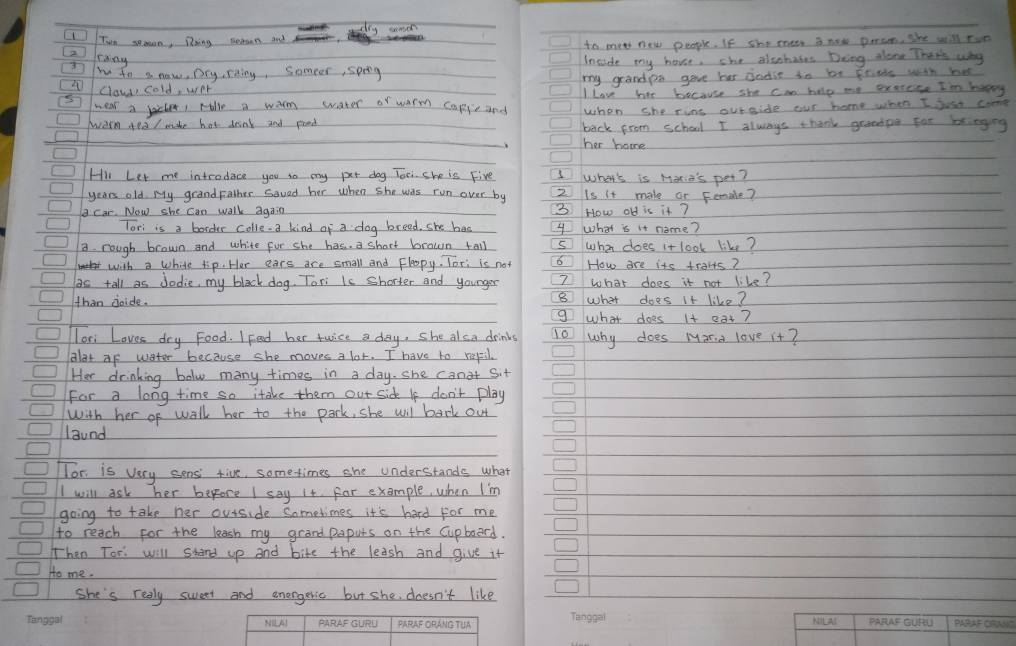 1 Two season, Raing season and dry season
2 rainy
3 no to snow, Dry, rainy, Someer, spring
4 Cloud, cold, wet
5 wear a jacket, make a warm water or warm coffe and
warm tea/make hot drink and food
Hii Let me introdace you to my pet dog Tori. She is Five
years old. My grandfather saved her when she was run over by
a car. Now she can walk again
Tori is a border colle-a kind of a dog breed. she has
a rough brown and white fur she has. a short brown tail
with a white tip. Her ears are small and floopy. Tori is not
as tall as Jodie, my black dog. Tori is shorter and younger
than Joide.
Tori Loves dry Food. I Feed her twice a day. She alsa drinks
alat af water because she moves a lot. I have to refil
Her drinking bolw many times in a day. she canat sit
For a long time so itake them out side If don't play
with her of walk her to the park, she wil bark out
laund
Tori is very sensi tive. sometimes she understands what
I will ask her before I say it. For example, when I'm
going to take her outside Sometimes it's hard for me
to reach for the leash my grand paputs on the Cupboard.
Then Tori will stand up and bite the leash and give it
to me.
She's realy sweet and energetic but she. doesn't like
Tanggal :
NILAI PARAF GURU PARAF ORANG TUA
to meet new people. If she meet a new person, she will run
Inside my house. she alsohates being alone That's why
my grandpa gave her Jodie to be frieds with her
I Love her because she can help me exercise I'm happy
when she runs outside our home when I just come
back from school I always thank grandpa for bringing
her home
1 What's is Maria's pet?
2 Is it male or Female?
3 How old is it?
4 what is it name?
5 what does it look like?
6 How are its traits?
7 what does it not like?
8 what does it like?
9 what does it eat?
10 why does Maria love it?
Tanggal :
NILAI PARAF GURU PARAF ORANG